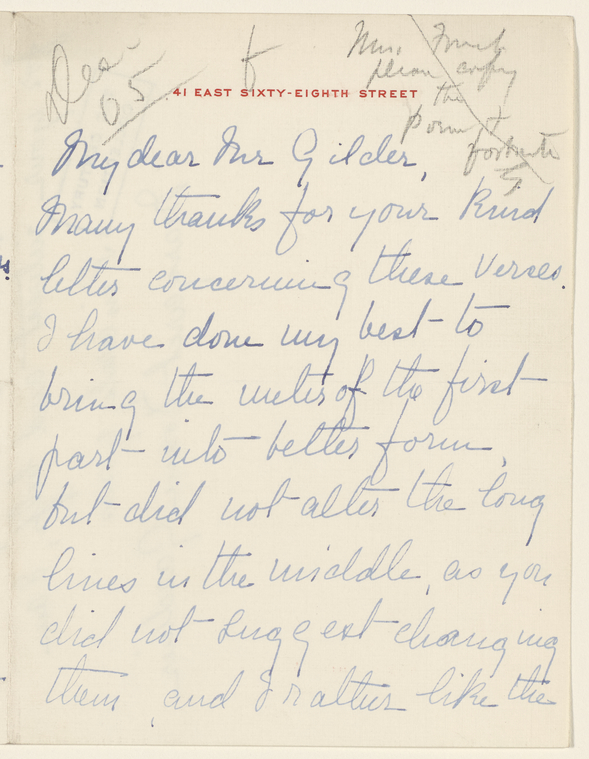 Dec
05
Mrs.
please copy
the
poem &
41 EAST SIXTY-EIGHTH STREET
My dear Mr Gilder,
Many thanks for your kind
letter concerning these verses.
I have done my best to
bring the meter of the first
part into better form,
but did not alter the long
lines in the middle, as you
did not suggest changing
them, and I rather like the